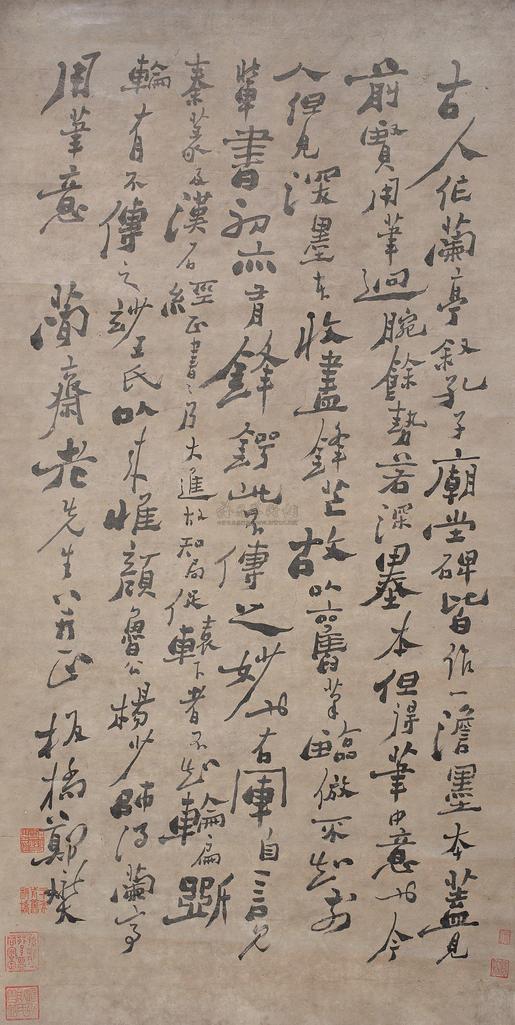 古人作蘭亭敘孔子廟堂碑皆作一澹墨本蓋見
前賢用筆迴腕餘勢若深墨本但得筆中意也今
人但見深墨本收盡鋒芒故以舊筆臨倣不知前
輩書初亦有鋒鍔此不傳之妙也右軍自言見
秦篆及漢石經正書書乃大進故知局促轅下者不知輪扁斲
輪有不傳之妙王氏以來惟顏魯公楊少師得蘭亭
用筆意 蘭齋老先生正 板橋鄭燮